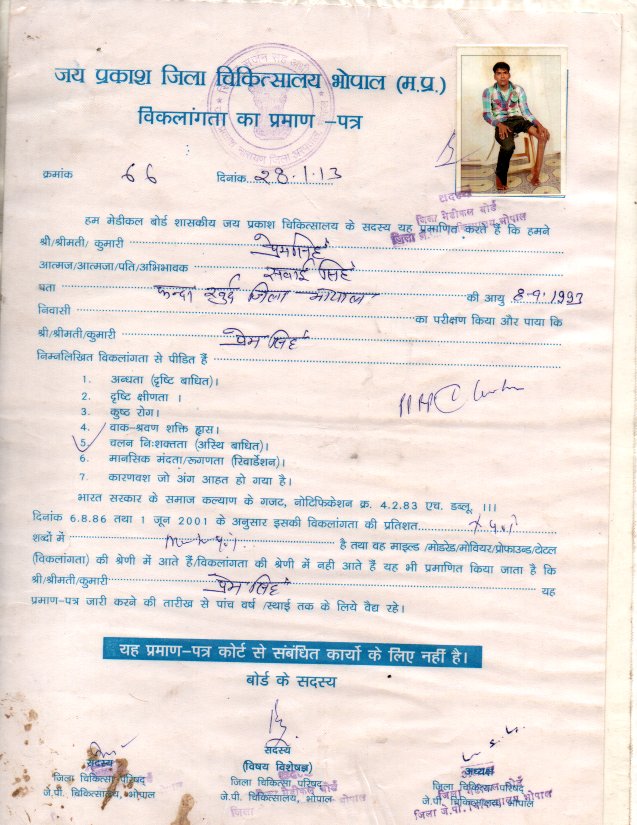 जय प्रकाश जिला चिकित्सालय भोपाल (म.प्र.)
विकलांगता का प्रमाण –पत्र
क्रमांक 66 दिनांक 28.1.13
हम मेडीकल बोर्ड शासकीय जय प्रकाश चिकित्सालय के सदस्य यह प्रमाणित करते हैं कि हमने
श्री/श्रीमती/ कुमारी प्रेमसिंह
आत्मज/आत्मजा/पति/अभिभावक सवाई सिंह
पता जिला भोपाल की आयु 8-9-1993
निवासी का परीक्षण किया और पाया कि
श्री/श्रीमती/कुमारी प्रेम सिंह
निम्नलिखित विकलांगता से पीड़ित हैं
1. अन्धता (दृष्टि बाधित)।
2. दृष्टि क्षीणता ।
3. कुष्ठ रोग।
4. वाक-श्रवण शक्ति ह्रास।
5. चलन निःशक्तता (अस्थि बाधित)।
6. मानसिक मंदता/रूगणता (रिवार्डेशन)।
7. कारणवश जो अंग आहत हो गया है।
भारत सरकार के समाज कल्याण के गजट, नोटिफिकेशन क्र. 4.2.83 एच. डब्लू. ।।।
दिनांक 6.8.86 तथा 1 जून 2001 के अनुसार इसकी विकलांगता की प्रतिशत
शब्दों में है तथा वह माइल्ड /मोडरेड/मोवियर/प्रोफाउन्ड/टोटल
(विकलांगता) की श्रेणी में आते हैं/विकलांगता की श्रेणी में नही आते हैं यह भी प्रमाणित किया जाता है कि
श्री/श्रीमती/कुमारी प्रेम सिंह यह
प्रमाण-पत्र जारी करने की तारीख से पांच वर्ष /स्थाई तक के लिये वैद्य रहे।
यह प्रमाण-पत्र कोर्ट से संबंधित कार्यो के लिए नहीं है।
बोर्ड के सदस्य
सदस्य
जिला चिकित्सा परिषद्
जे.पी. चिकित्सालय, भोपाल
सदस्य
(विषय विशेषज्ञ)
जिला चिकित्सा परिषद्
जे.पी. चिकित्सालय, भोपाल
अध्यक्ष
जिला चिकित्सा परिषद्
जे.पी. चिकित्सालय, भोपाल